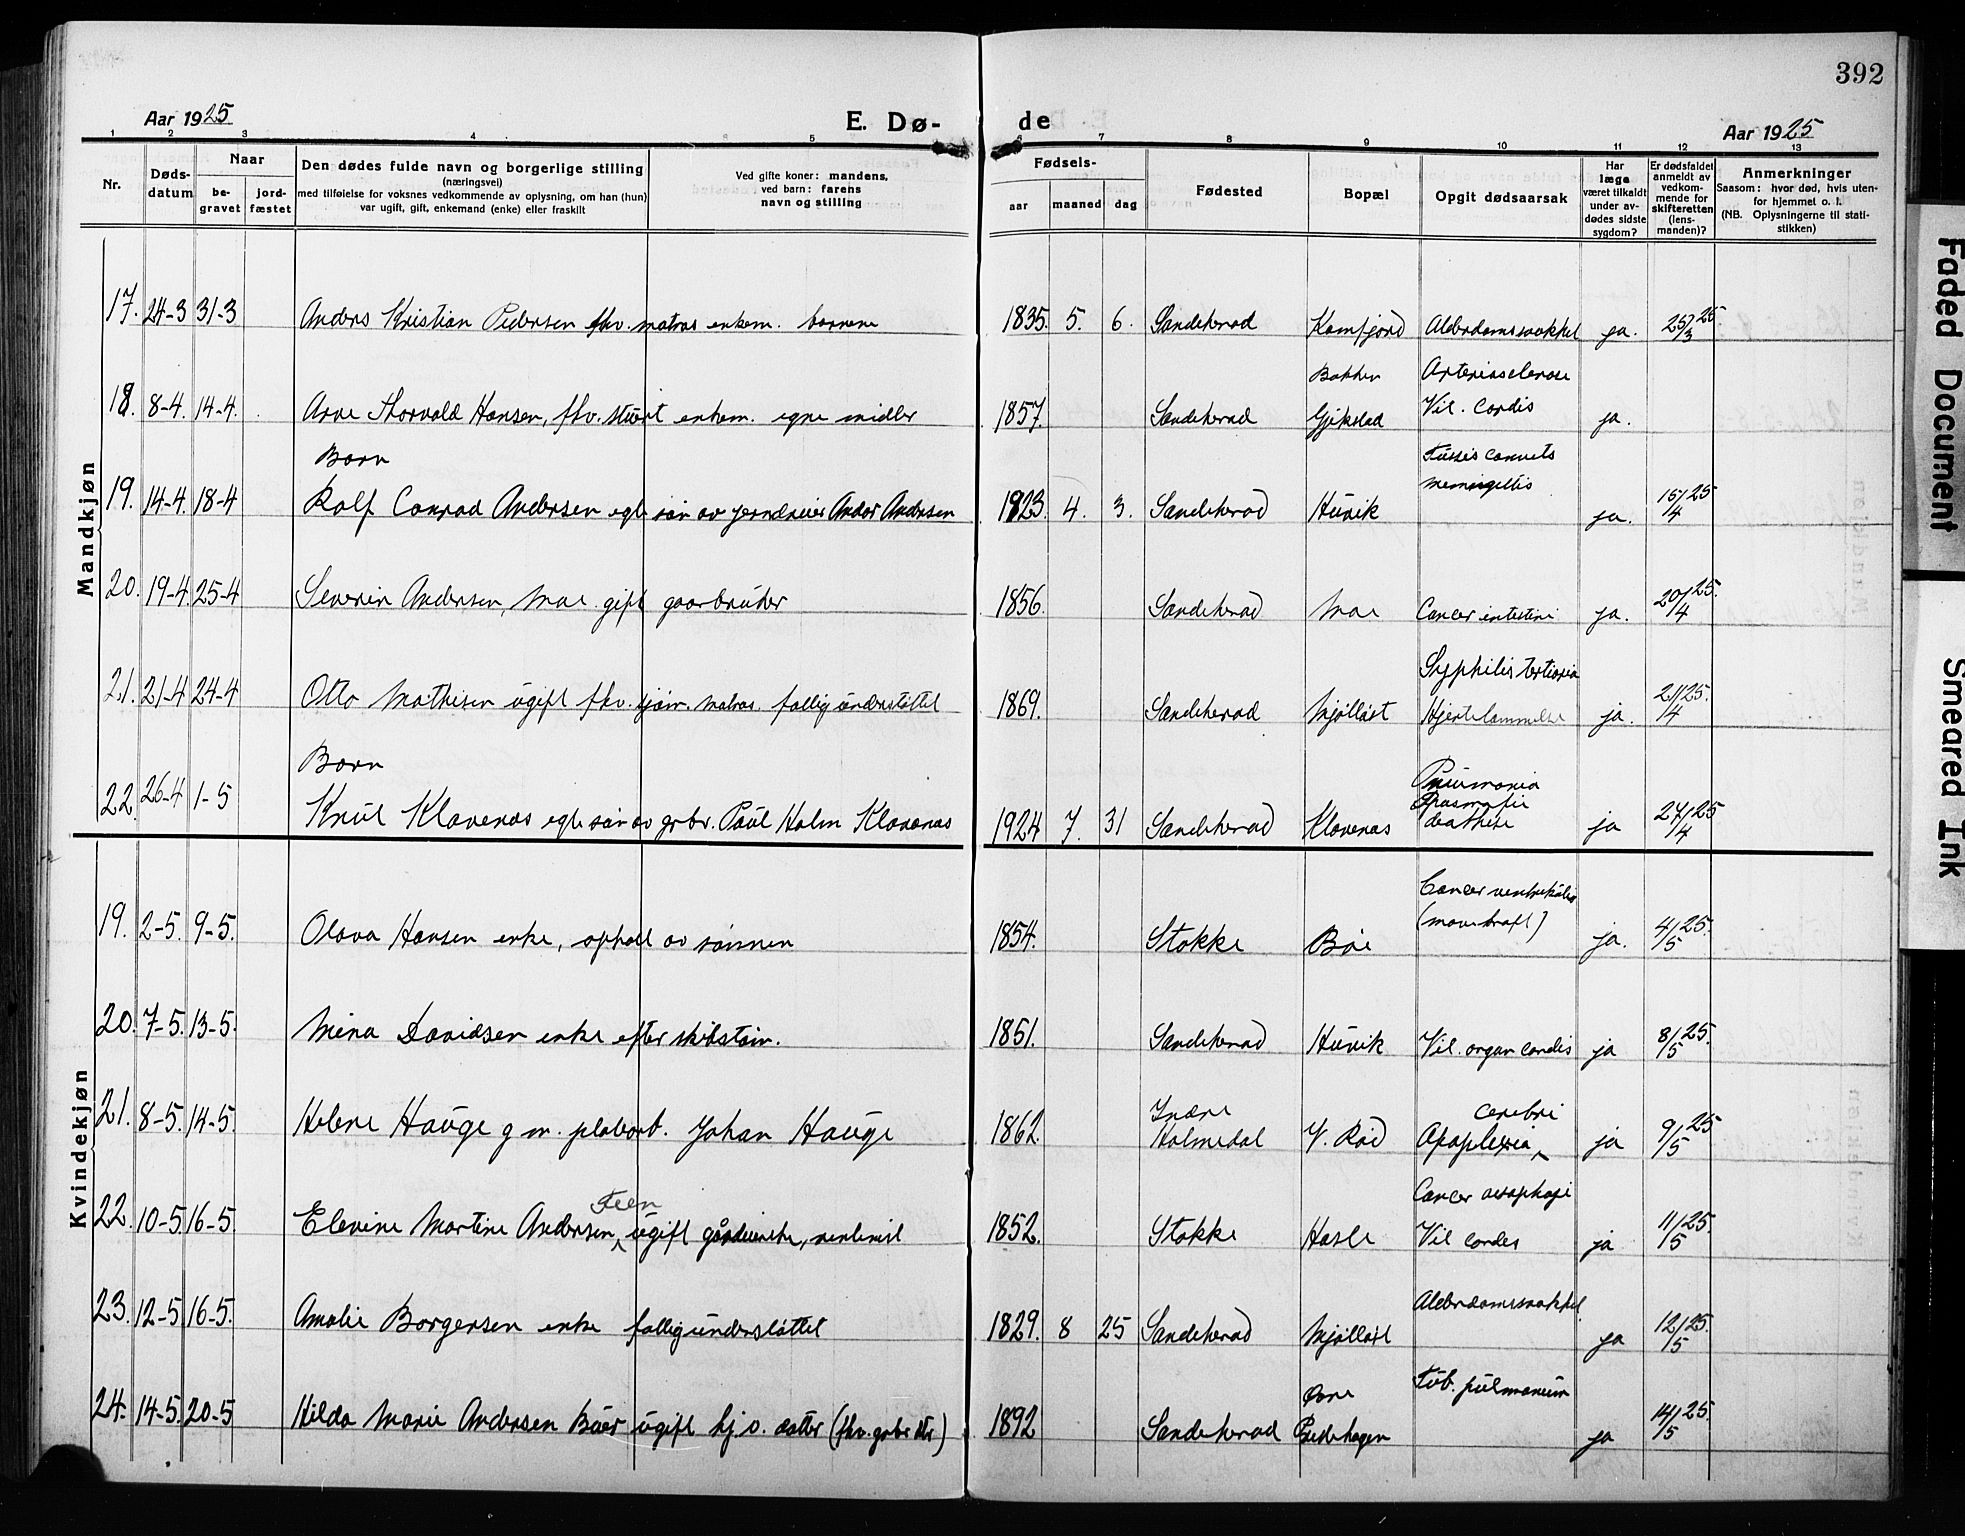 392
Aar 1925
E. Dø-
de
Aar 1925
1 2 3 4 5 6 7 8 9 10 11 12 13
Nr.
Døds-
datum
Naar
be-
gravet
jord-
fæstet
Den dødes fulde navn og borgerlige stilling
(næringsvei)
med tilføielse for voksnes vedkommende av oplysning, om han (hun)
var ugift, gift, enkemand (enke) eller fraskilt
Ved gifte koner: mandens,
ved barn: farens
navn og stilling
Fødsels-
aar
maaned
dag
Fødested
Bopæl
Opgit dødsaarsak
Har
læge
været tilkaldt
under av-
dødes sidste
sygdom?
Er dødsfaldet
anmeldt av
vedkom-
mende for
skifteretten
(lens-
manden)?
Anmerkninger
Saasom: hvor død, hvis uten-
for hjemmet o. l.
(NB. Oplysningerne til stati-
stikken)
Mandkjøn
17. 24-3 31-3 Anders Kristian Pedersen fhv. matros enkem. barnene 1835. 5. 6. Sandeherad Kamfjord Alderdomssvakkel ja. 25/3 25
Bakken Arteriosclerose
18. 8-4. 14-4. Arve Thorvald Hansen, fhv. stuert enkem. egne midler 1857. Sandeherad Gjekstad Vit. Cordis ja.
Barn Tussis convuls
meningitis
19. 14-4. 18-4 Rolf Conrad Andersen egte søn av jerndreier Andor Andersen 1923. 4. 3. Sandeherad Huvik ja. 15/4 25
20. 19-4. 25-4 Severin Andersen, Moe gift gaarbruker 1856. Sandeherad Moe Cancer intestini ja. 20/4 25.
Syphilis tertiaria
21. 21-4 24-4 Otto Mathisen ugift fhv. sjøm. matros. fattig understøttet 1869. Sandeherad Mjølløst Hjertelammelse ja. 21/4 25.
Barn Pneumonia
22. 26-4 1-5 Knut Klavenæs egte søn av grbr. Paul Holm Klavenæs 1924 7. 31 Sandeherad Klavenæs ja 27/4 25
Kvindekjøn
Cancer ventrikuli
(mavekræft)
19. 2-5. 9-5. Olava Hansen enke, ophold av sønnen 1854. Stokke Bøe ja. 4/5 25.
20. 7-5. 13-5. Mina Davidsen enke efter skibstøm. 1851. Sandeherad Huvik Vit. organ cordis ja 8/5 25.
Indre cerebri
21. 8-5. 14-5. Helene Hauge g m. pladsarb. Johan Hauge 1862. Holmedal V. Rød Apoplexia ja 9/5 25
Teen Cancer oesophagi
22. 10-5. 16-5. Elevine Martine Andersen, ugift 1852. Stokke Hasle Vit cordis ja 11/5 25.
Alderdomssvakkel
23. 12-5 16-5. Amalie Borgersen enke fattigunderstøttet 1829. 8 25 Sandeherad Mjølløst ja 12/5 25.
Øvre Tub. pulmonum
24. 14-5. 20-5 Hilda Marie Andersen Buer ugift hj. v. datter (fhv. grbr. dtr) 1892 Sandeherad Bedehagen ja 14/5 25.
Faded Document
Smeared Ink